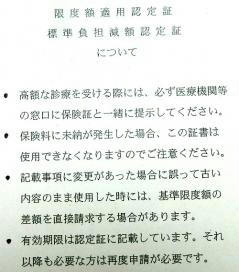 限度額適用認定証
標準負担減額認定証
について
● 高額な診療を受ける際には、必ず医療機関等
の窓口に保険証と一緒に提示してください。
● 保険料に未納が発生した場合、この証書は
使用できなくなりますのでご注意ください。
● 記載事項に変更があった場合に誤って古い
内容のまま使用した時には、基準限度額の
差額を直接請求する場合があります。
● 有効期限は認定証に記載しています。それ
以降も必要な方は再度申請が必要です。